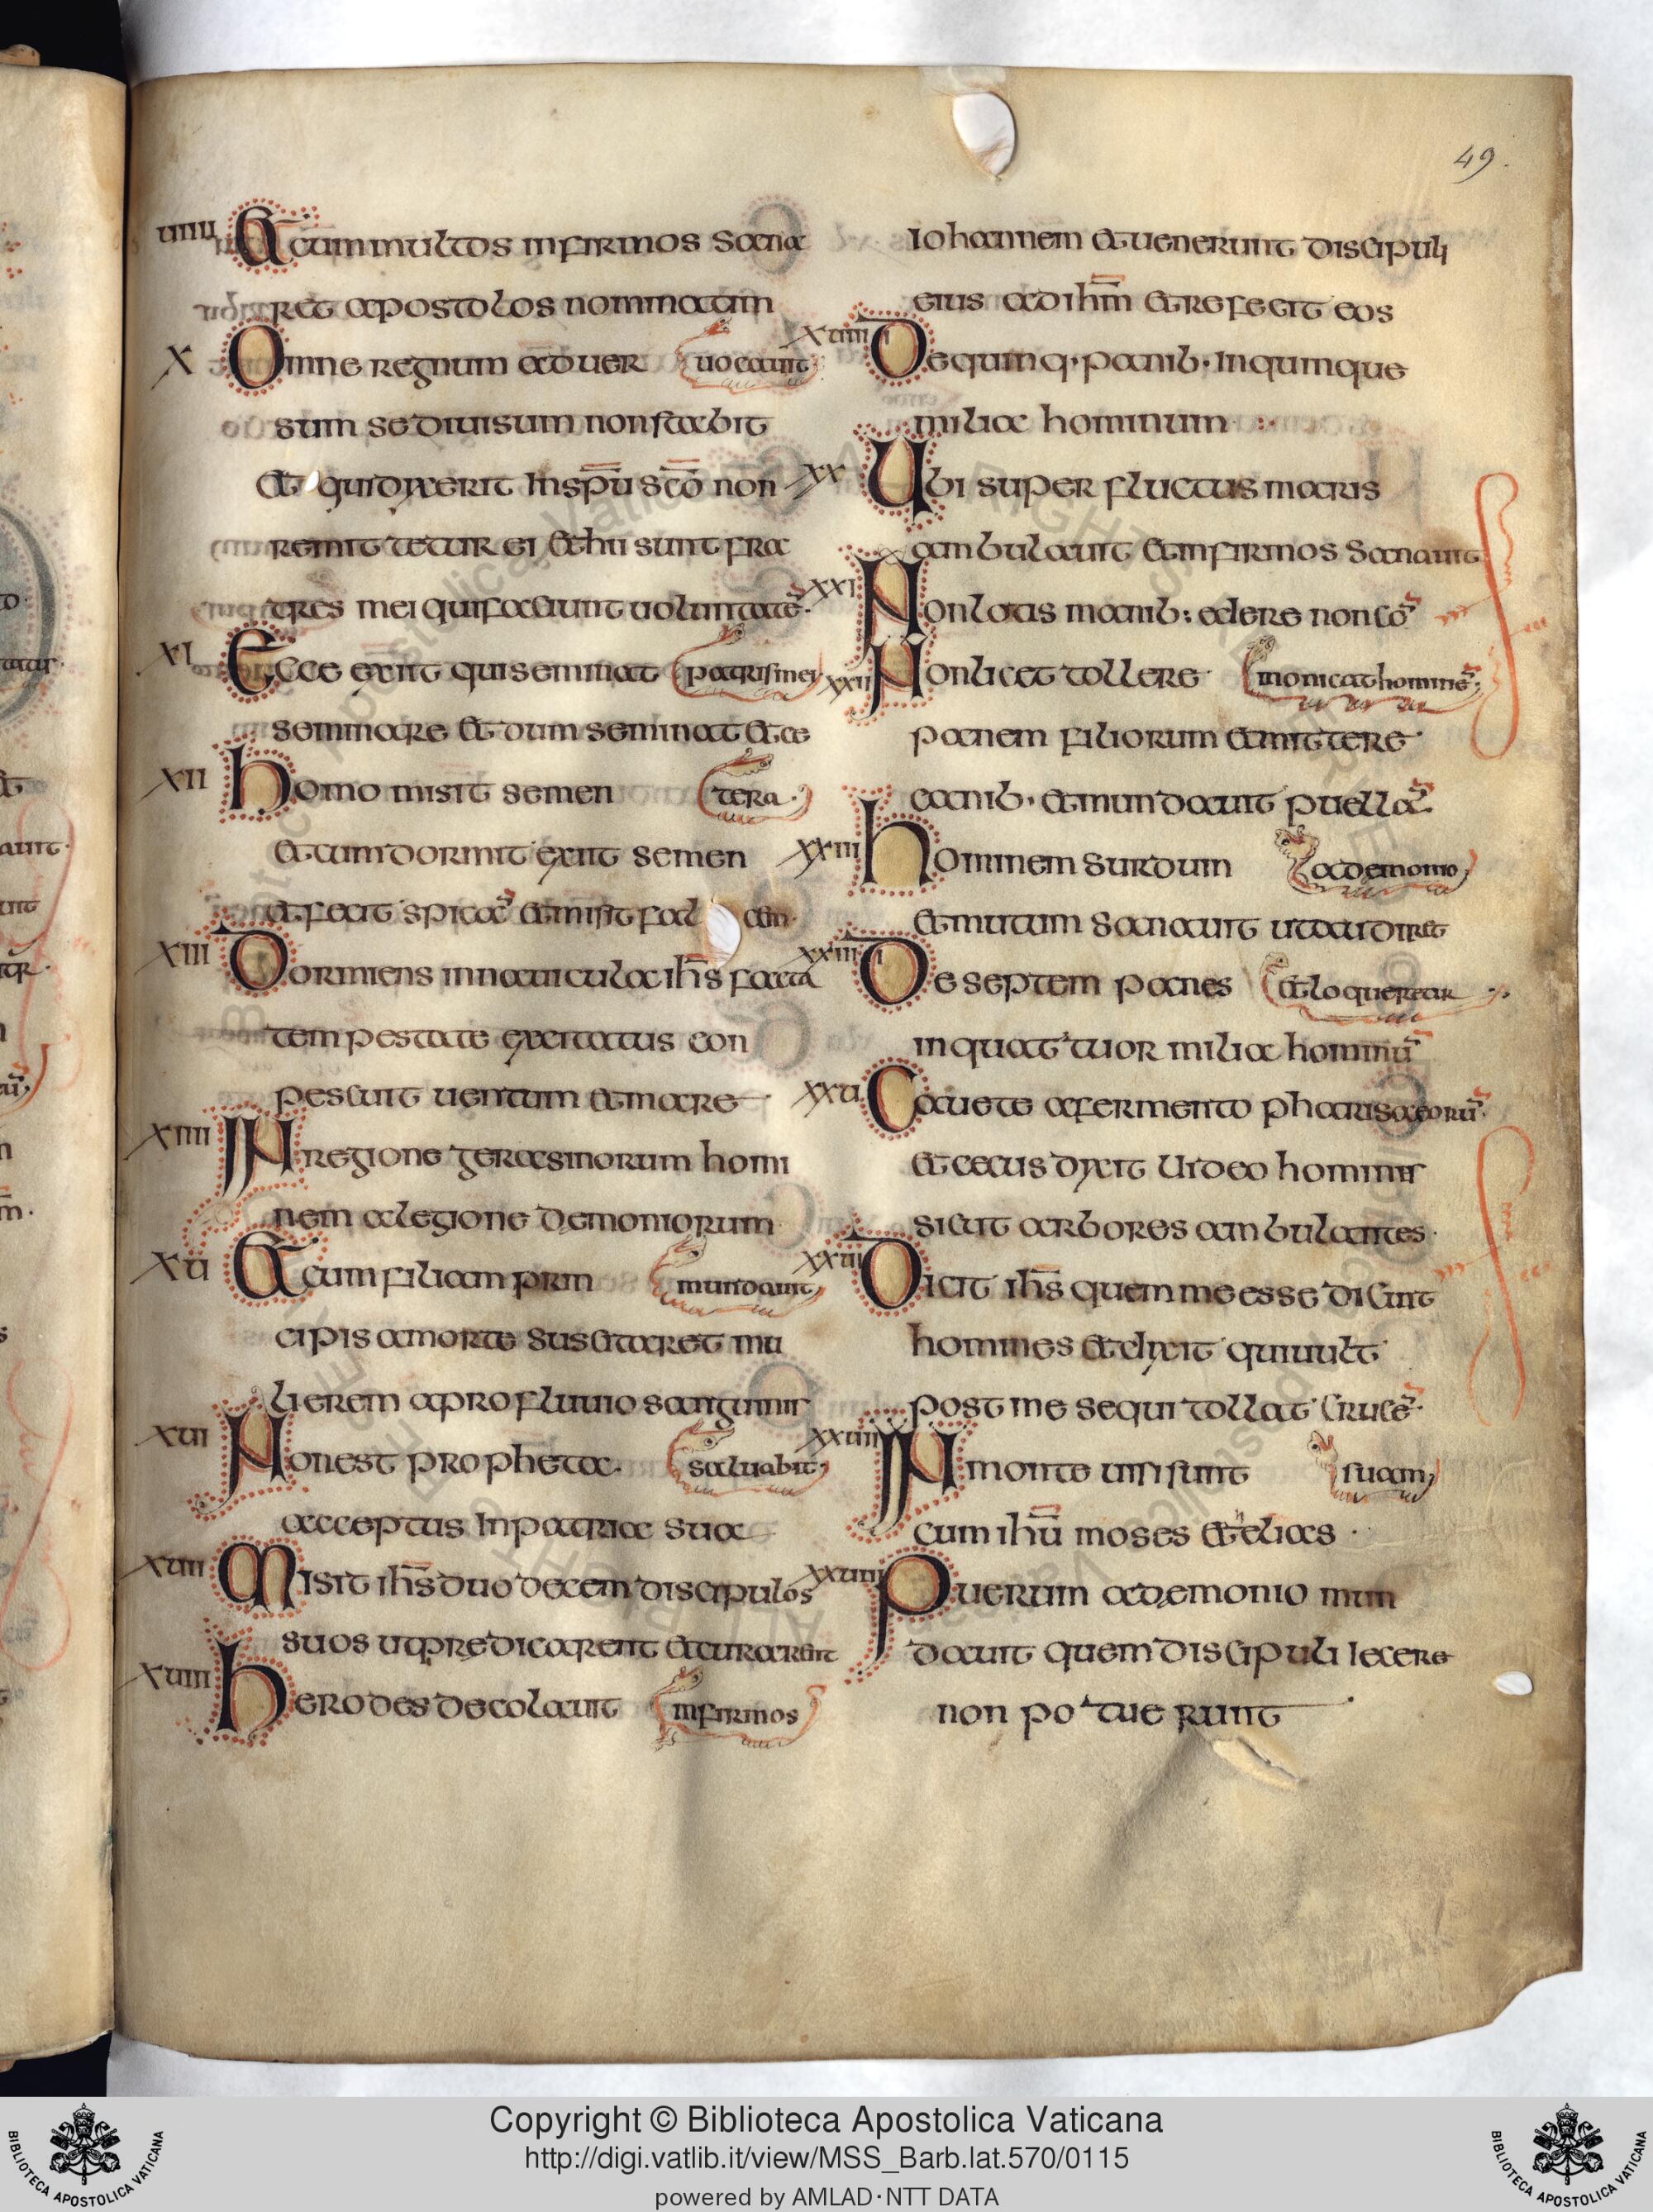 49.
uiiii Et cum multos infirmos sana
ret apostolos nominatim
X Omne regnum aduer uocauit
sum se diuisum non stabit
et qui dixerit in spu sco non
remittetur ei et hii sunt fra
tres mei qui faciunt uoluntate
XI Ecce exiit qui seminat patris mei
seminare et dum seminat et ce
XII Homo misit semen tera
et cum dormit exiit semen
et fecit spica et misit fal cem
XIII Dormiens in nauicula ihs facta
tempestate excitatus con
pescuit uentum et mare
XIIII In regione gerasinorum homi
nem a legione demoniorum
XU Et cum filiam prin mundauit
cipis a morte suscitaret mu
lierem a profluuio sanguinis
XUI Non est propheta saluabit
acceptus in patria sua
XUII Misit ihs duodecem discipulos
suos ut predicarent et curarent
XUIII Herodes decolauit infirmos
iohannem et uenerunt discipuli
eius ad ihm et refecit eos
XUIIII De quinq. panib. in quinque
milia hominum
XX Ubi super fluctus maris
ambulauit et infirmos sanauit
XXI Non lotis manib; edere non co
XXII Non licet tollere inonicat homine
panem filiorum et mittere
canib. et mundauit puella
XXIII Hominem surdum a demonio
et mutum sanauit ut audiret
XXIIII De septem panes et loqueretur
in quattuor milia hominu
XXU Cauete a fermento pharisaeoru
et cecus dixit uideo hominis
sicut arbores ambulantes
XXUI Dicit ihs quem me esse dicunt
homines et dixit qui uult
post me sequi tollat cruce
XXUII In monte uisi sunt suam
cum ihu moses et elias
XXUIII Puerum a demonio mun
dauit quem discipuli iecere
non potuerunt
Copyright © Biblioteca Apostolica Vaticana
http://digi.vatlib.it/view/MSS_Barb.lat.570/0115
powered by AMLAD·NTT DATA
BIBLIOTECA APOSTOLICA VATICANA
BIBLIOTECA APOSTOLICA VATICANA